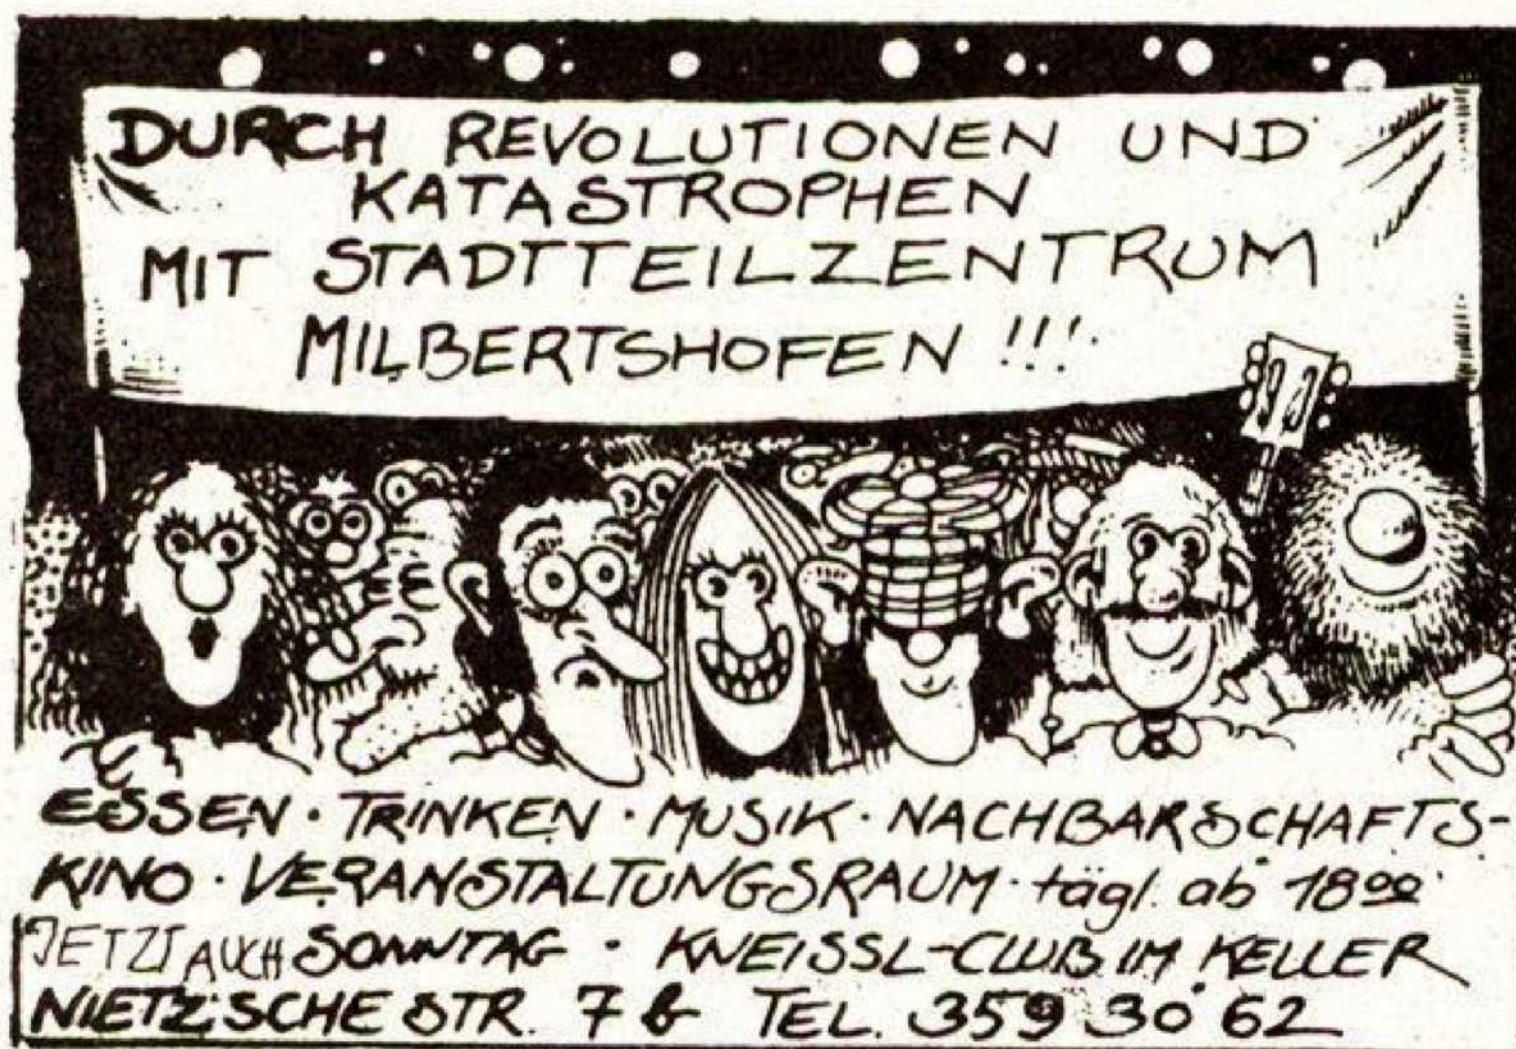 DURCH REVOLUTIONEN UND
KATASTROPHEN
MIT STADTTEILZENTRUM
MILBERTSHOFEN !!!
ESSEN · TRINKEN · MUSIK · NACHBARSCHAFTS-
KINO · VERANSTALTUNGSRAUM · tägl. ab 18⁰⁰
JETZT AUCH SONNTAG · KNEISSL-CLUB IM KELLER
NIETZSCHE STR. 7 b TEL. 359 30 62